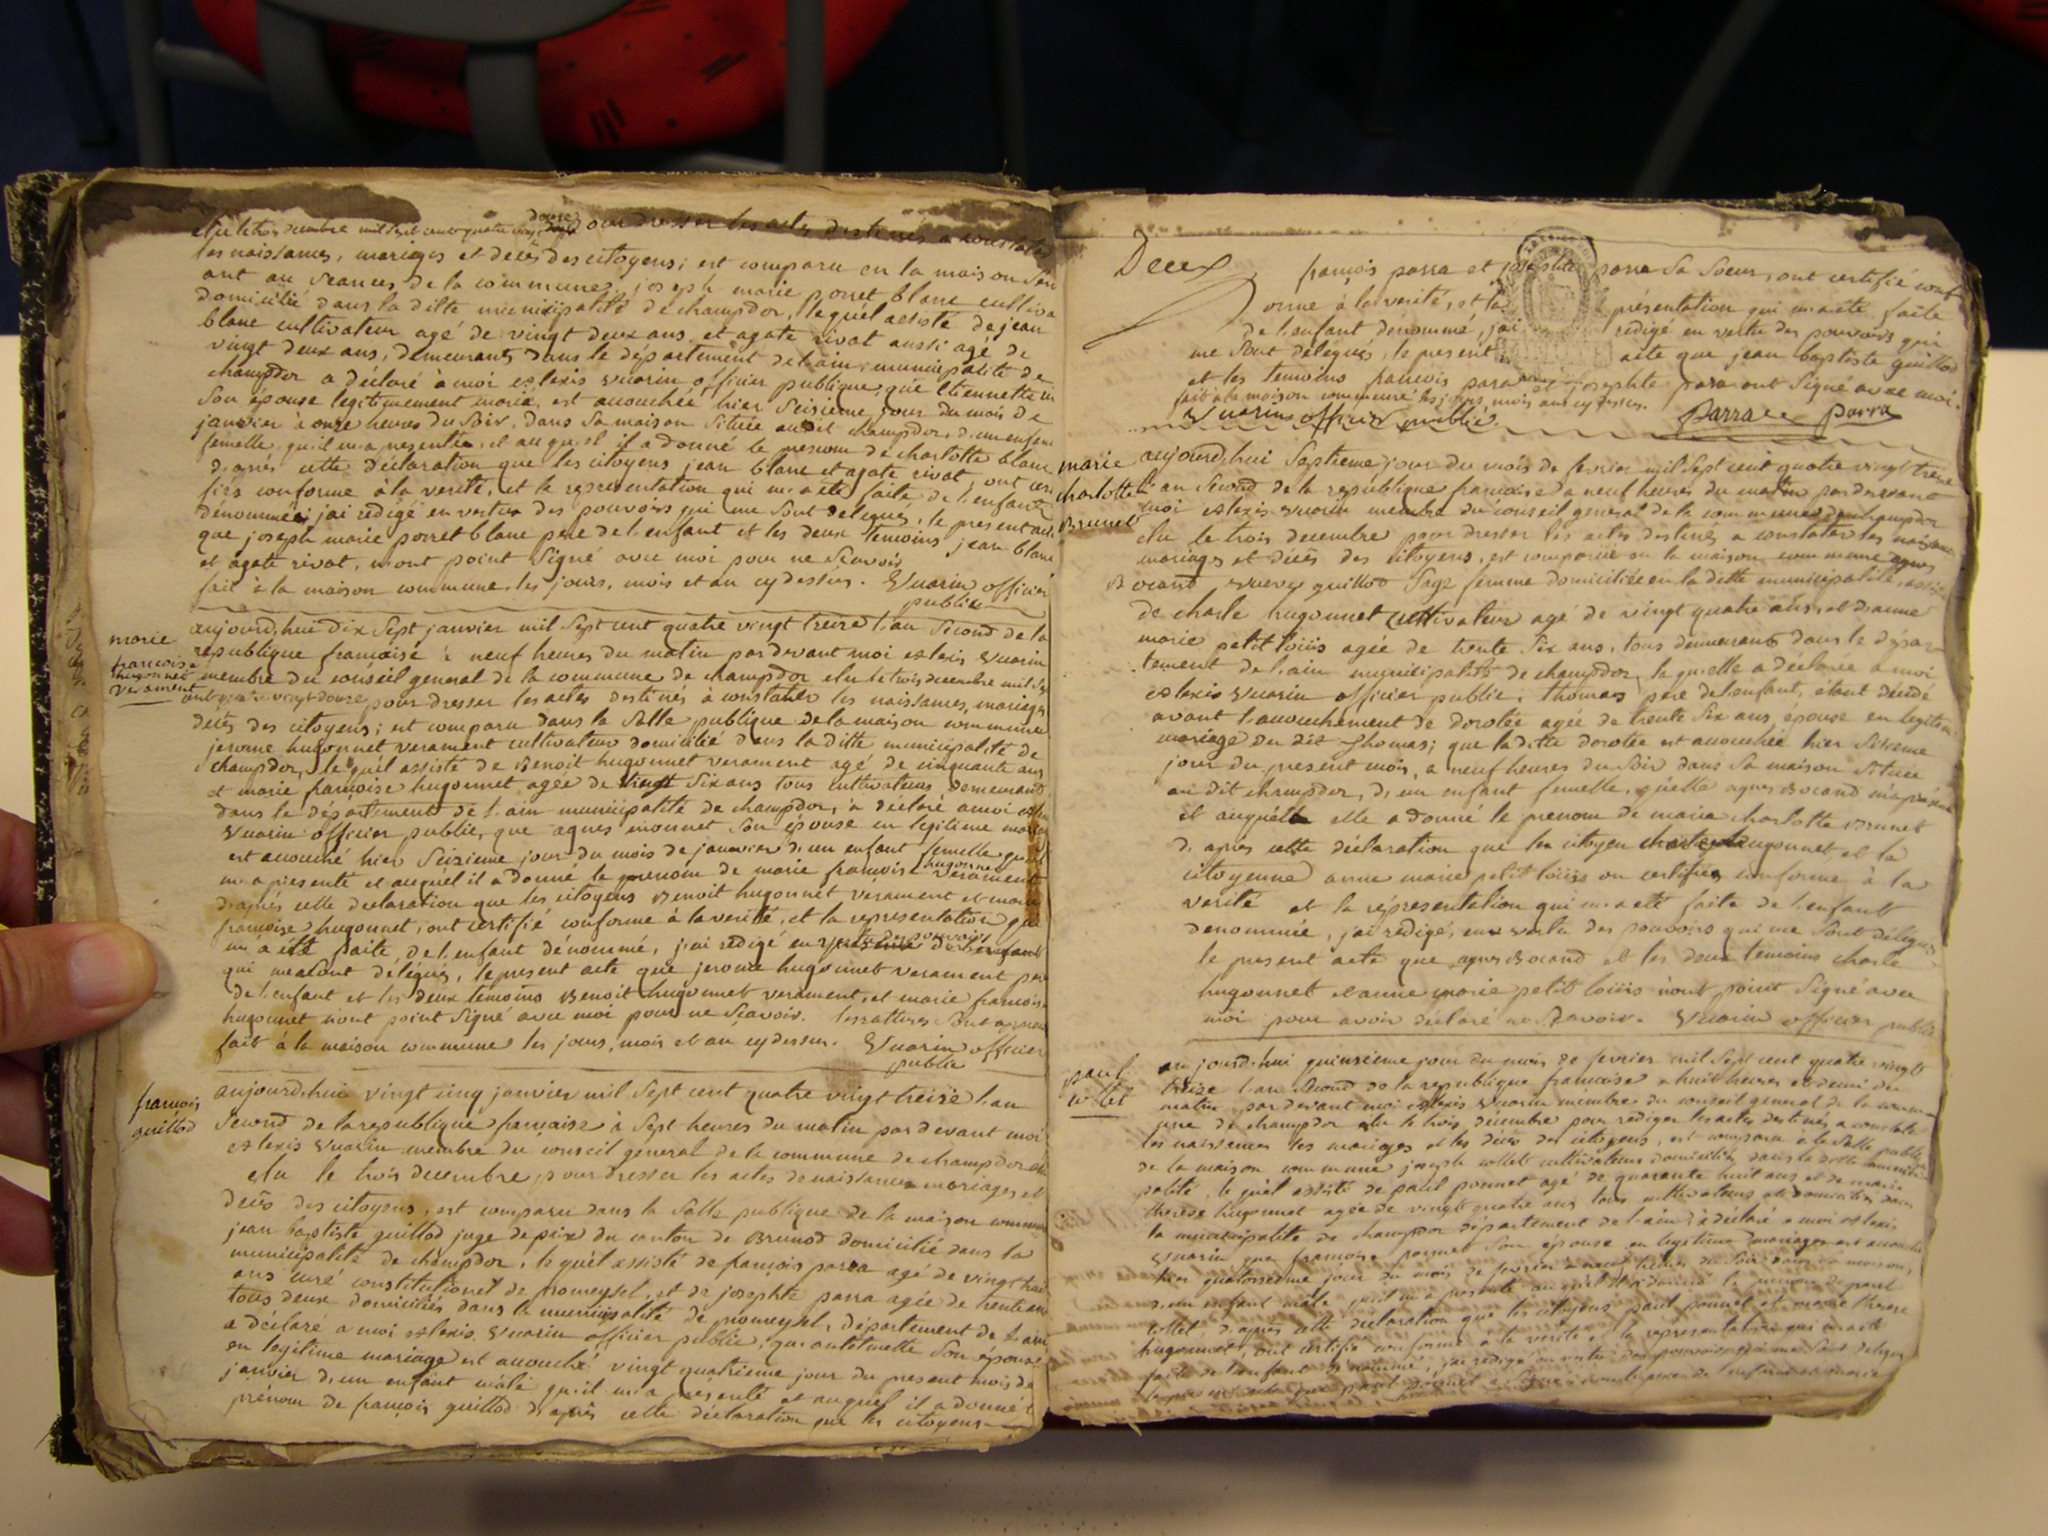 elu le trois decembre mil sept cent quatre vingt douze pour dresser les actes destinés a constater
les naissances, mariages et decès des citoyens; est comparu en la maison
ant au seances de la commune, joseph marie porret blanc cultiva
domicilié dans la ditte municipalité de champdor, lequél assisté de jean
blanc cultivateur agé de vingt deux ans et agate rivat aussi agé de
vingt deux ans, demeurants dans le departement de l'ain, municipalité de
champdor a déclaré à moi alexis vuarin officier publique, que etiennette
son épouse legitimement marié, est accouchée hier seisieme jour du mois de
janvier à onze heures du soir, dans sa maison située au dit champdor, d'un enfent
femelle, qu'il m'a presentée, et auquél il a donné le prenom de charlotte blanc
d'aprés cette déclaration que les citoyens jean blanc et agate rivat, ont certi
fiés conforme à la verité, et la representation qui m'a été faite de l'enfant
dénommée, j'ai rédigé en vertu des pouvoirs qui me sont delegués, le present acte
que joseph marie porret blanc pere de l'enfant et les deux temoins jean blanc
et agate rivat, n'ont point signé avec moi pour ne sçavoir
fait à la maison commune, les jours, mois et an cy dessus. Vuarin officier
public
marie
françoise
hugonnet
verament
aujourd'hui dix sept janvier mil sept cent quatre vingt treize l'an second de la
republique françaisé à neuf heures du matin par devant moi alexis vuarin
membre du conséil general de la commune de champdor elu le trois decembre mil sept
cent quatre vingt douze pour dresser les actes destinés à constater les naissances, mariages
decès des citoyens; est comparu dans la salle publique de la maison commune
jerome hugonnet verament cultivateur domicilié dans la ditte municipalité de
champdor, le quél assisté de Benoit hugonnet verament agé de cinquante ans
et marie françoise hugonnet agée de vingt six ans tous cultivateurs, demeurants
dans le département de l'ain municipalité de champdor, a déclaré a moi alexis
Vuarin officier public, que agnes monnet son épouse en legitime mariage
est accouché hier seizieme jour du mois de janvier d'un enfant femelle qu'il
m'a presenté et auquél il a donné le prenom de marie françoise hugonnet verament
d'aprés cette declaration que les citoyens Benoit hugonnet vérament et marie
françoise hugonnet, ont certifié conforme à la verité, et la representation qui
m'a été faite de l'enfant dénommé, j'ai redigé en vertu des pouvoirs
qui me sont délégués, le present acte que jerome hugonnet verament pere
de l'enfant et les deux temoins Benoit hugonnet verament, et marie françoise
hugonnet n'ont point signé avec moi pour ne sçavoir. les ratures sont
fait à la maison commune les jours, mois et an cy dessus. Vuarin officier
public
françois
guillod
aujourd'hui vingt cinq janvier mil sept cent quatre vingt treise l'an
second de la republique françaisé à sept heures du matin par devant moi
alexis vuarin membre du conseil general de la commune de champdor
elu le trois decembre, pour dresser les actes de naissances mariages et
decès des citoyens, est comparu dans la salle publique de la maison commune
jean baptiste guillod juge de paix du canton de Brunod domicilié dans la
municipalité de champdor, le quél assisté de françois parra agé de vingt huit
ans curé constitutionel de et de josephte parra agée de trente ans
tous deux domiciliés dans la municipalité de département de l'ain
a déclaré a moi alexis Vuarin officier public, que son épouse
en legitime mariage est accouché vingt quatrieme jour du present mois de
janvier d'un enfant mâle qu'il m'a présenté et auquél il a donné le
prénom de françois guillod d'aprés cette déclaration que les citoyens
Deux
françois parra et josephte parra sa soeur, ont certifié conf
orme à la verité, et la présentation qui m'a été faite
de l'enfant dénommé, j'ai redigé en vertu des pouvoirs qui
me sont delegués, le present acte que jean baptiste guillod
et les temoins francois parra et josephte parra ont signé avec moi.
fait a la maison commune les jours, mois ans cy dessus.
Vuarin officier public. Parra Parra
marie
charlotte
Brunet
aujourd'hui septieme jour du mois de fevrier mil sept cent quatre vingt treise
l'an second de la republique francaise a neuf heures du matin par devant
moi alexis vuarin membre du conseil general de la commune de champdor
elu le trois decembre pour dresser les actes destinés a constater les naissances
mariages et decès des citoyens, est comparue en la maison commune agnes
Bocand veuve guillod sage femme domiciliée en la ditte municipalité, assistée
de charle hugonnet cultivateur agé de vingt quatre ans, et d'anne
marie petit louiis agée de trente six ans, tous demeurants dans le depar
tement de l'ain municipalité de champdor, la quelle a déclarée a moi
alexis Vuarin officier public. thomas pere de l'enfant, étant décédé
avant l'accouchement de dorotée agée de trente six ans, épouse en legitime
mariage du dit thomas; que la ditte dorotée est accouchée hier sixieme
jour du present mois, a neuf heures du soir dans sa maison située
au dit champdor, d'un enfant femelle, quélle agnes Bocand m'a présenté
et auquél elle a donné le prenom de marie charlotte Brunet
d'aprés cette déclaration que le citoyen charle hugonnet, et la
citoyenne anne marie petit louiis on certifiés conforme à la
verité et la répresentation qui m'a été faite de l'enfant
denommée, j'ai rédigé, en vertu des pouvoirs qui me sont délégués
le present acte que agnes Bocand et les deux temoins charle
hugonnet et anne marie petit louiis n'ont point signé avec
moi pour avoir déclaré ne sçavoir. Vuarin officier public
paul
collet
aujourd'hui quinsieme jour du mois de fevrier mil sept cent quatre vingt
treize l'an second de la republique françoise a huit heures et demi du
matin par devant moi alexis Vuarin membre du conseil general de la commu
une de champdor elu le trois decembre pour rediger les actes destinés a constater
les naissances les mariages et les décès des citoyens, est comparu a la salle publique
de la maison commune joseph collet cultivateur domicilié dans la ditte munici
palité, le quél assisté de paul ponnet agé de quarante huit ans et de marie
therese hugonnet agée de vingt quatre ans tous cultivateurs et domiciliés dans
la municipalité de champdor département de l'ain, a déclaré a moi alexis
Vuarin que françoise ponnet son épouse en legitime mariage est accouché
hier quatorsieme jour du mois de fevrier a neuf heures du soir dans sa maison,
d'un enfant mâle qu'il m'a presenté auquél il a donné le prenom de paul
collet, d'aprés cette déclaration que les citoyens paul ponnet et marie therese
hugonnet, ont certifié conforme à la verité et la representation qui m'a été
faite de l'enfant denommé, j'ai redigé en vertu des pouvoirs qui me sont delegués
le present acte que paul ponnet a signé